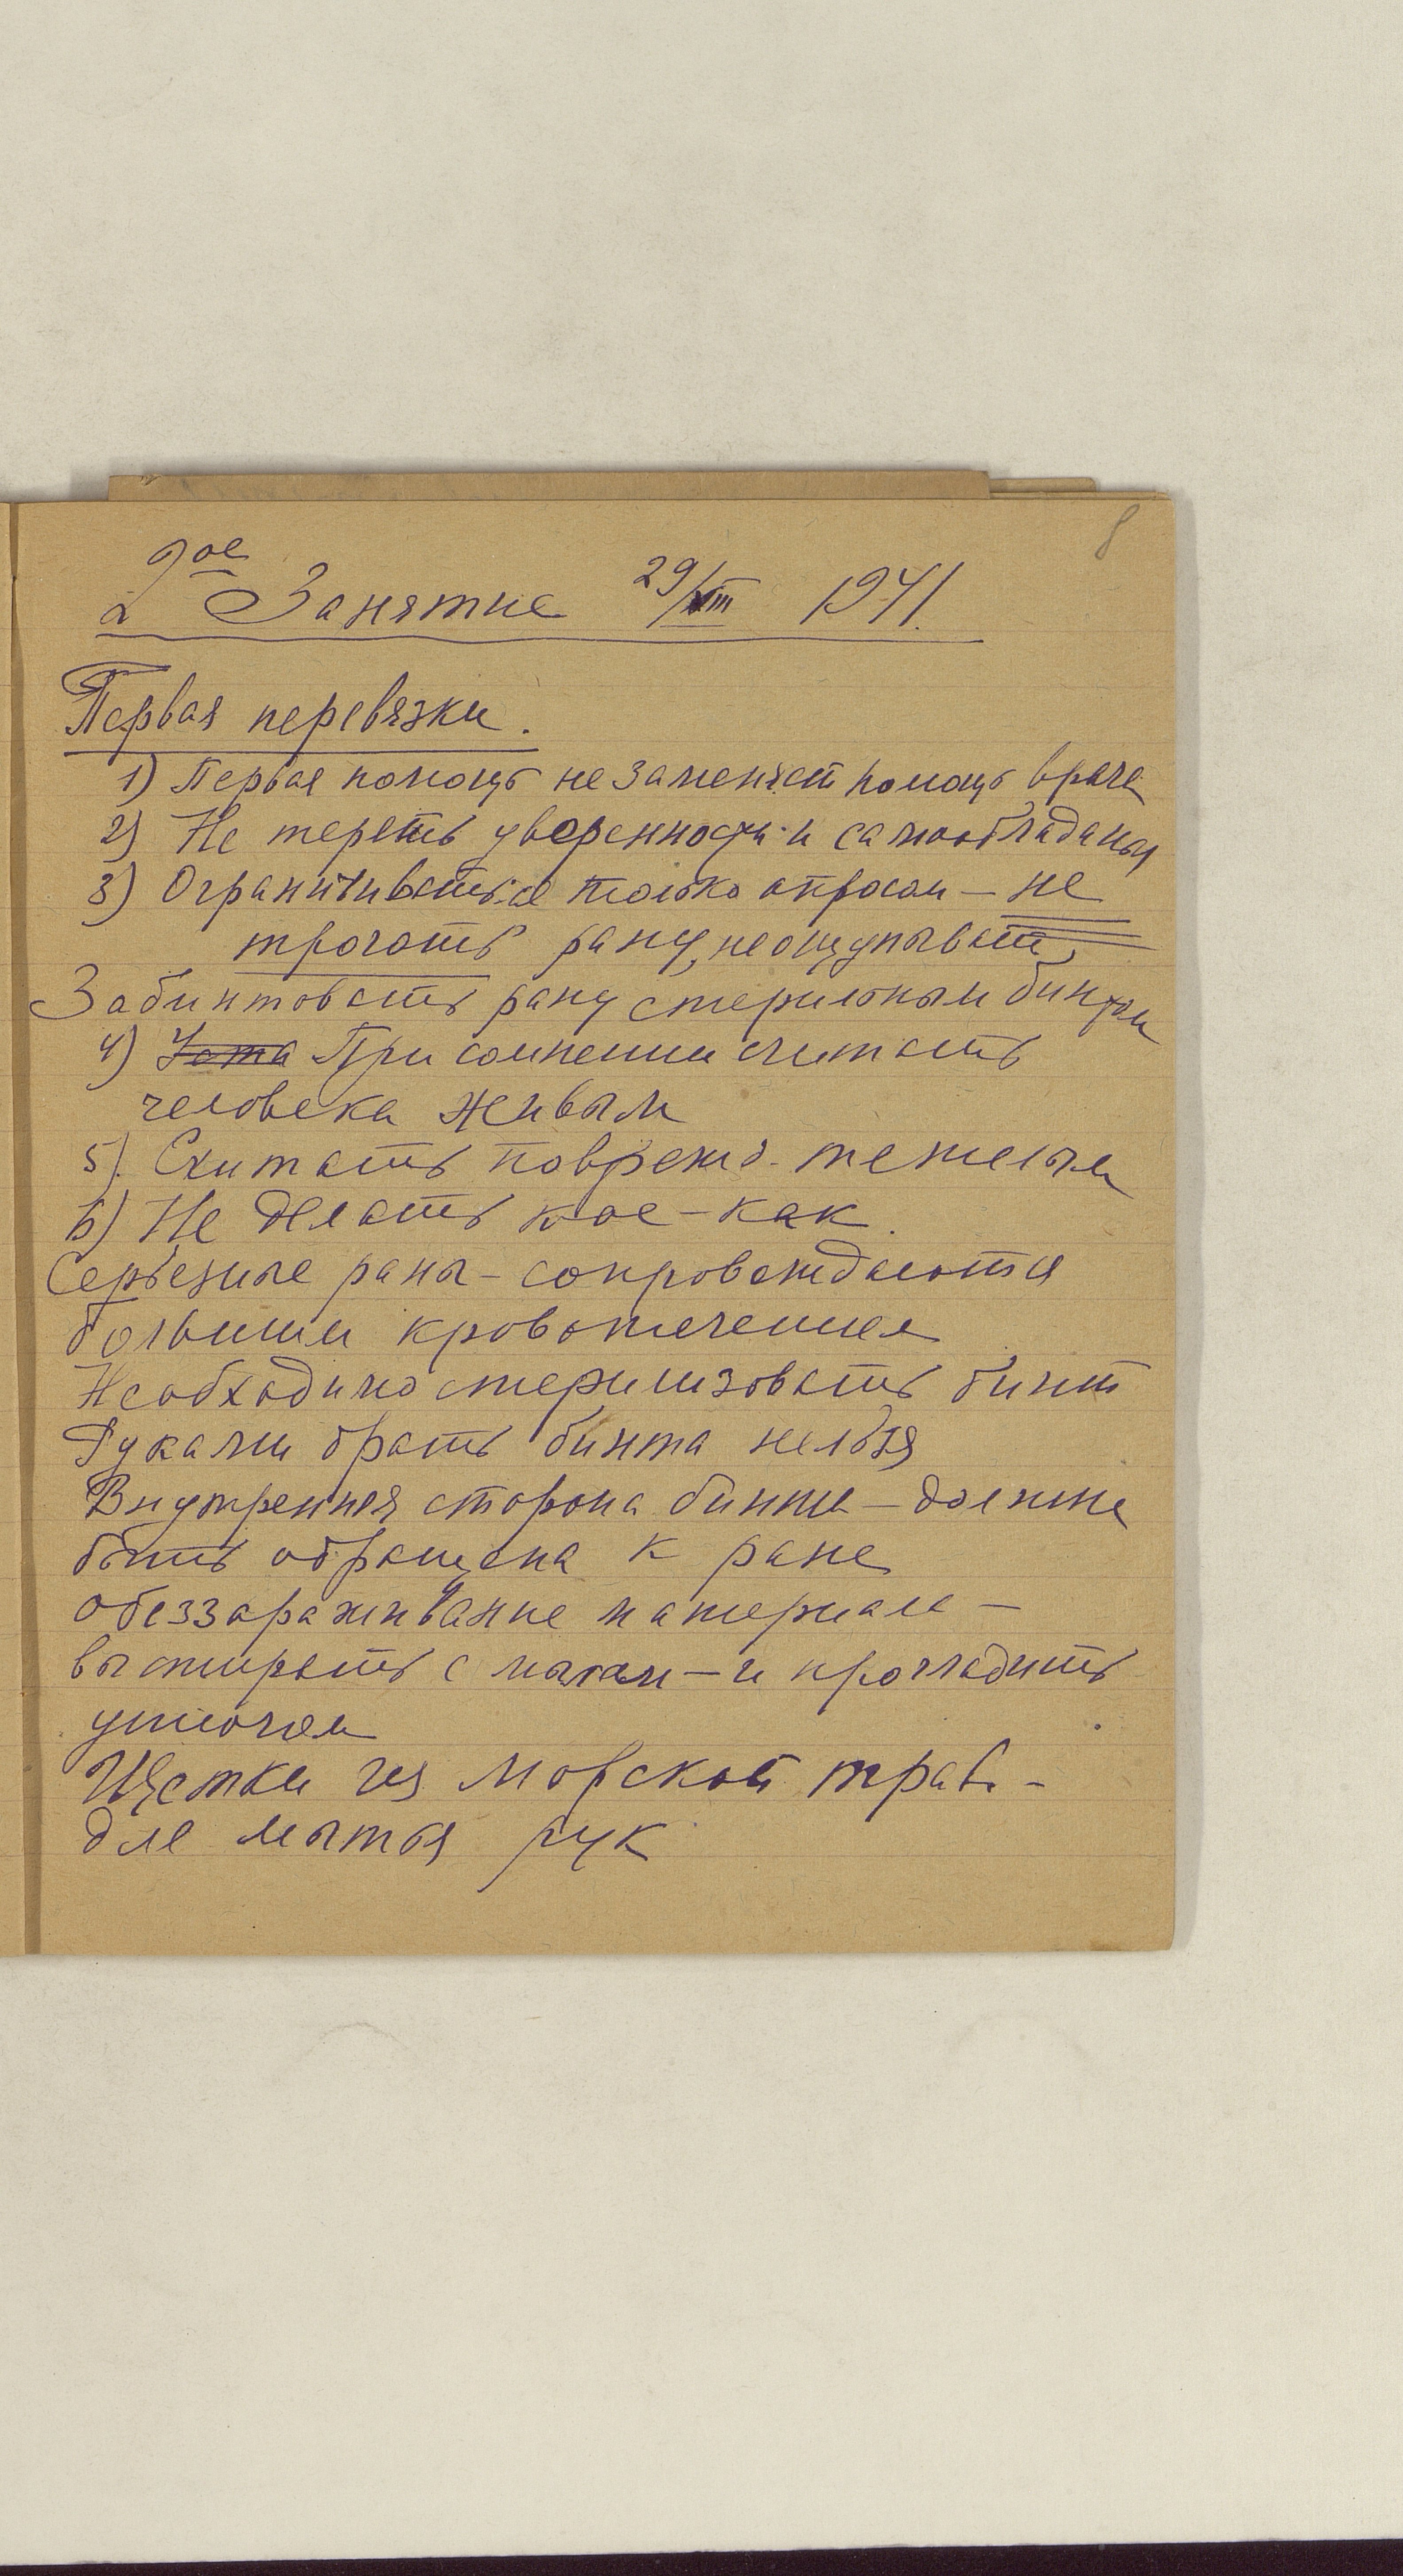 8
2ое Занятие 29/VIII 1941.
Первая перевязки.
1) Первая помощь не заменяет помощь врача
2) Не терять уверенности и самообладания
3) Ограничиваться только опросом — не
трогать рану, не ощупывать
Забинтовать рану стерильным бинтом
4) При сомнении считать
человека живым
5) Считать поврежд. тяжелым
6) Не делать кое-как.
Серьезные раны – сопровождаются
большим кровотечением
Необходимо стерилизовать бинт
Руками брать бинта нельзя
Внутренняя сторона бинта — должна
быть обращена к ране
обеззараживание материала —
выстирать с мылом — и прогладить
утюгом
Щетки из морской травы -
для мытья рук